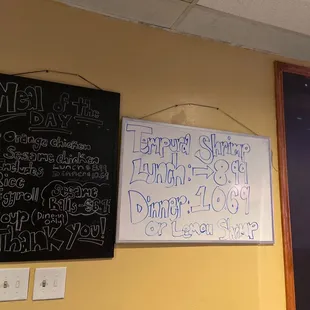 Meal
of the
DAY
Orange chicken
Sesame chicken
Rice
Eggroll
Soup (Dinner)
Thank You!
Tempura Shrimp
Lunch: 899
Dinner: 1069
or Lemon Shrimp